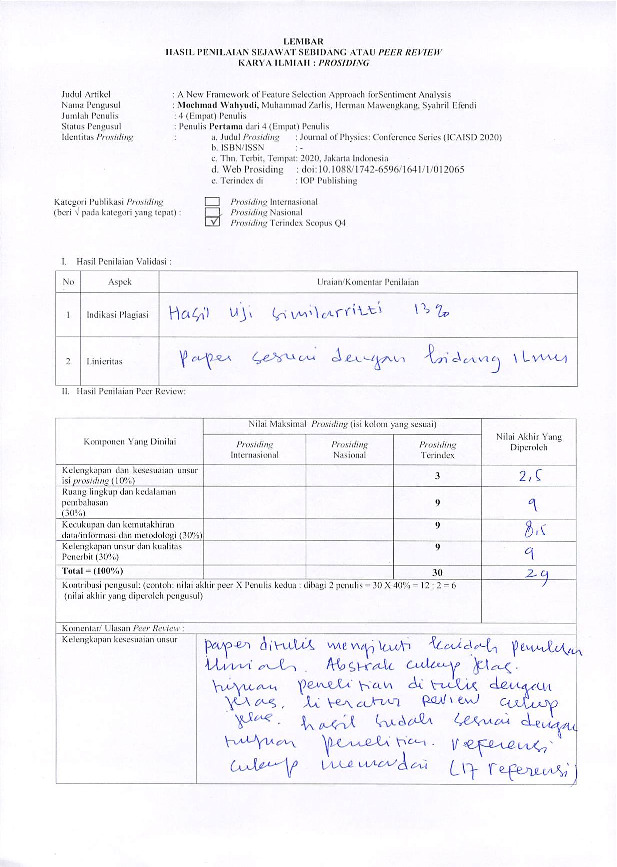 LEMBAR
HASIL PENILAIAN SEJAWAT SEBIDANG ATAU PEER REVIEW
KARYA ILMIAH : PROSIDING
Judul Artikel : A New Framework of Feature Selection Approach forSentiment Analysis
Nama Pengusul : Mochmad Wahyudi, Muhammad Zarlis, Herman Mawengkang, Syahril Efendi
Jumlah Penulis : 4 (Empat) Penulis
Status Pengusul : Penulis Pertama dari 4 (Empat) Penulis
Identitas Prosiding : a. Judul Prosiding : Journal of Physics: Conference Series (ICAISD 2020)
b. ISBN/ISSN : -
c. Thn. Terbit, Tempat: 2020, Jakarta Indonesia
d. Web Prosiding : doi:10.1088/1742-6596/1641/1/012065
e. Terindex di : IOP Publishing
Kategori Publikasi Prosiding Prosiding Internasional
(beri √ pada kategori yang tepat) : Prosiding Nasional
√ Prosiding Terindex Scopus Q4
I. Hasil Penilaian Validasi :
No Aspek Uraian/Komentar Penilaian
1 Indikasi Plagiasi Hasil Uji similarritti 13%
2 Linieritas Paper sesuai dengan bidang Ilmu
II. Hasil Penilaian Peer Review:
Komponen Yang Dinilai Nilai Maksimal Prosiding (isi kolom yang sesuai) Nilai Akhir Yang Diperoleh
Prosiding Internasional Prosiding Nasional Prosiding Terindex
Kelengkapan dan kesesuaian unsur
isi prosiding (10%) 3 2,5
Ruang lingkup dan kedalaman
pembahasan
(30%) 9 9
Kecukupan dan kemutakhiran
data/informasi dan metodologi (30%) 9 8,5
Kelengkapan unsur dan kualitas
Penerbit (30%) 9 9
Total = (100%) 30 29
Kontribusi pengusul: (contoh: nilai akhir peer X Penulis kedua : dibagi 2 penulis = 30 X 40% = 12 : 2 = 6
(nilai akhir yang diperoleh pengusul)
Komentar/ Ulasan Peer Review :
Kelengkapan kesesuaian unsur
paper ditulis mengikuti kaidah penulisan
Ilmiah. Abstrak cukup jelas.
tujuan penelitian ditulis dengan
jelas. literatur review cukup
jelas. hasil sudah sesuai dengan
tujuan penelitian. referensi
cukup memadai (17 referensi)